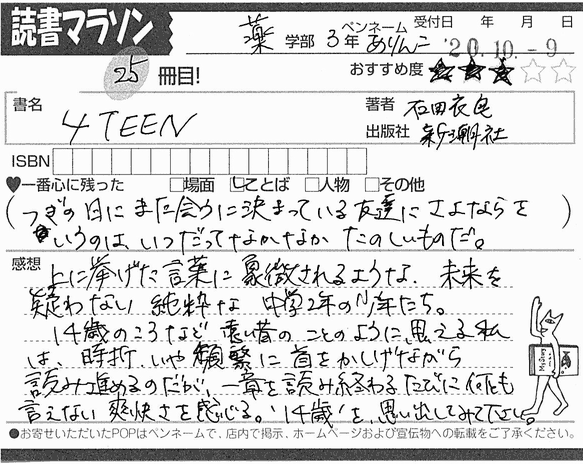 読書マラソン
薬 学部 3年 ペンネーム ありんこ 受付日 年 月 日
'20.10.-9
25 冊目!
おすすめ度 ★★★☆☆
書名 4TEEN
著者 石田衣良
出版社 新潮社
ISBN
♥一番心に残った □場面 □ことば □人物 □その他
(つぎの日にまた会うに決まっている友達にさよならを
いうのは、いつだってなかなかたのしいものだ。)
感想 上に挙げた言葉に象徴されるような、未来を
疑わない純粋な中学2年の少年たち。
14歳のころなど遠い昔のことのように思える私
は、時折、いや頻繁に首をかしげながら
読み進めるのだが、一章を読み終わるたびに何とも
言えない爽快さを感じる。'14歳'を、思い出してみて下さい。
●お寄せいただいたPOPはペンネームで、店内で掲示、ホームページおよび宣伝物への転載をご了承ください。